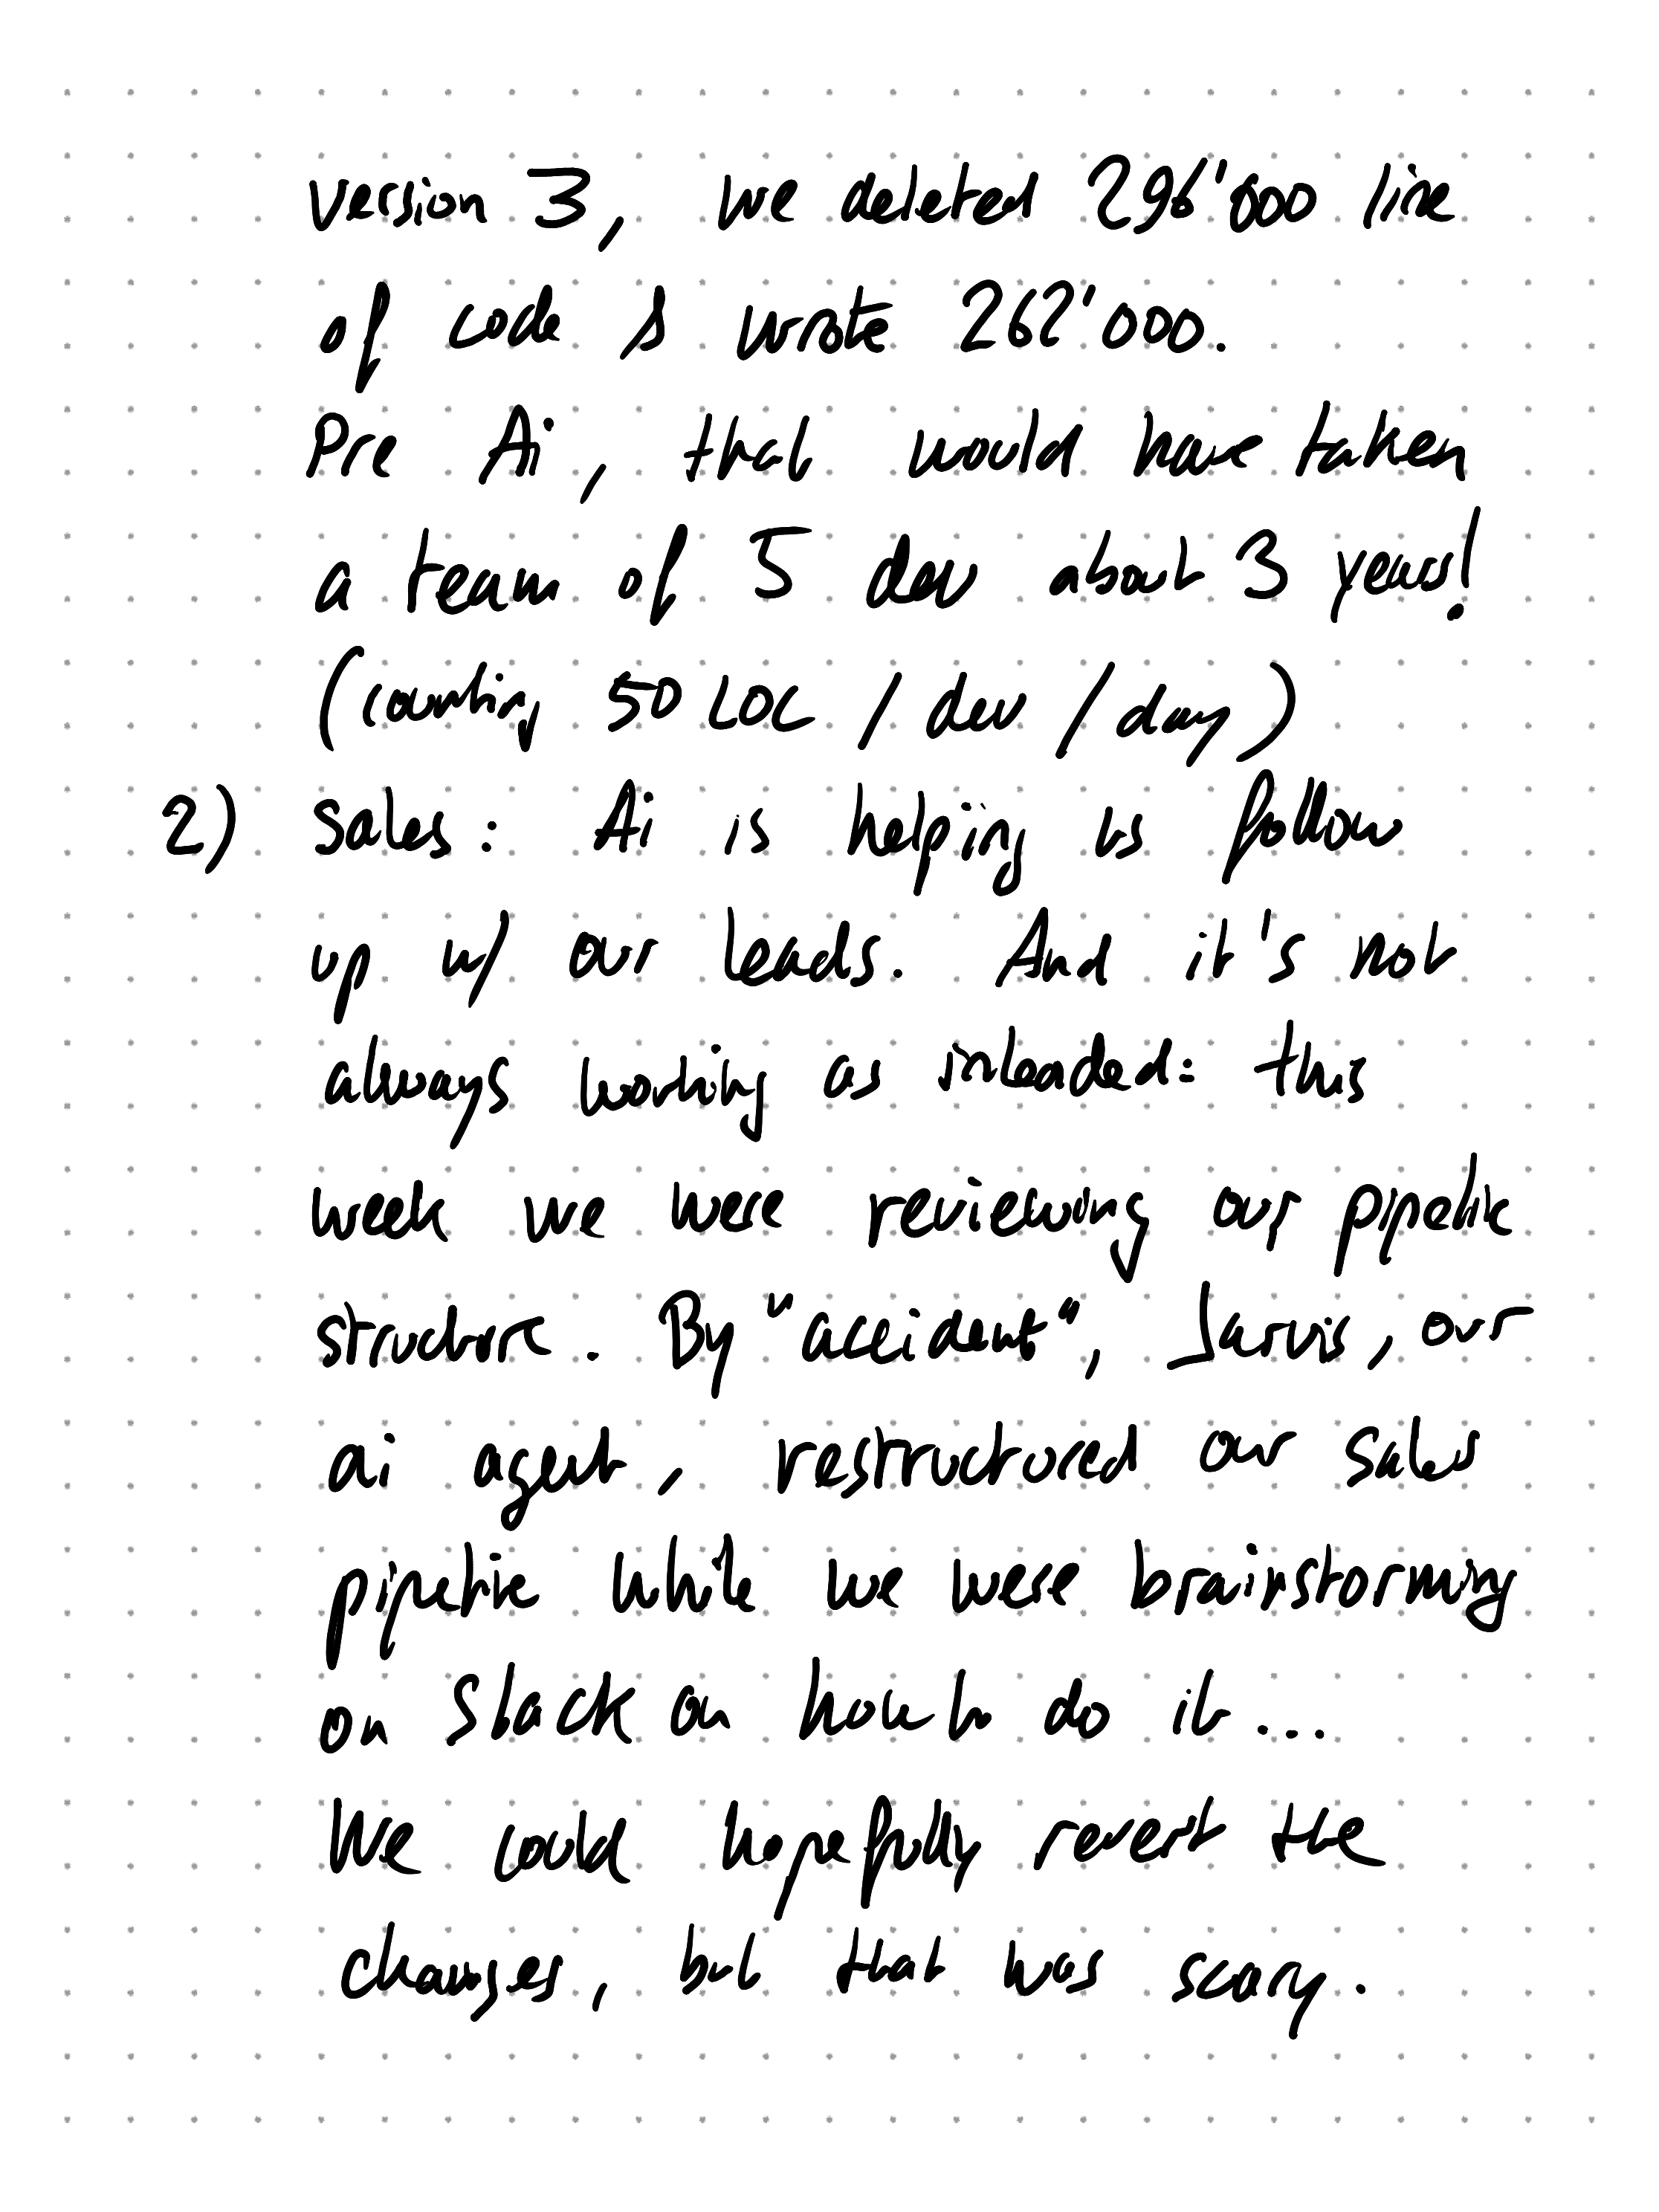 version 3, we deleted 296'000 line
of code & wrote 262'000.
Pre Ai, that would have taken
a team of 5 dev about 3 years!
(counting 50 LOC / dev / day)
2) Sales: Ai is helping us follow
up w/ our leads. And it's not
always working as intended: this
week we were reviewing our pipeline
structure. By "accident", Jarvis, our
ai agent, restructured our sales
pipeline while we were brainstorming
on Slack on how to do it...
We could hopefully revert the
changes, but that was scary.